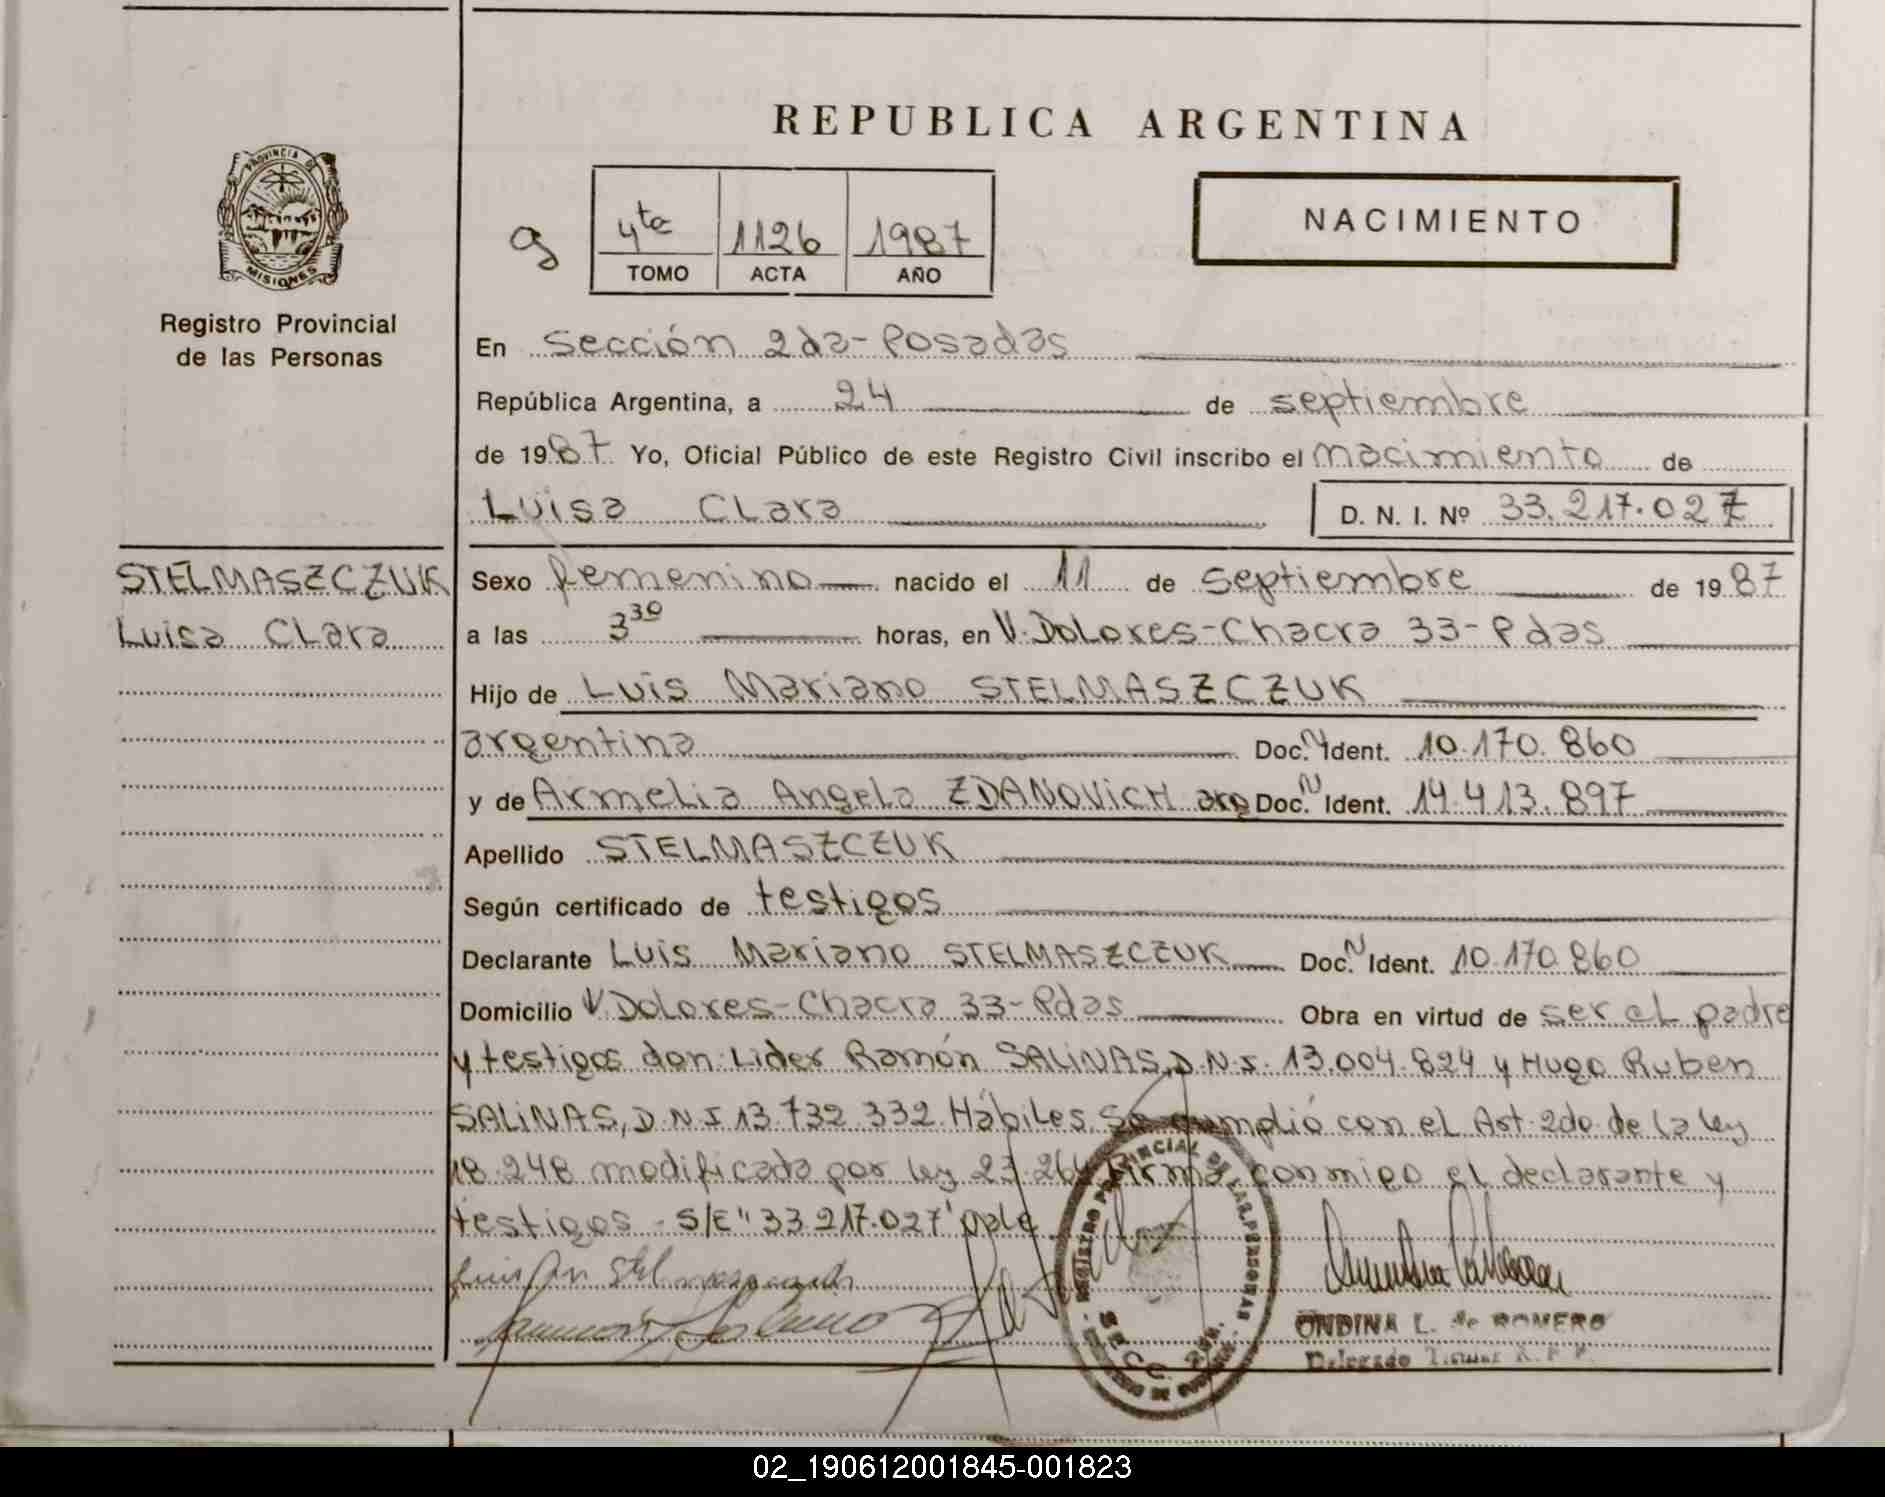 REPUBLICA ARGENTINA
PROVINCIA DE
MISIONES
Registro Provincial
de las Personas
g
4ta 1126 1987
TOMO ACTA AÑO
NACIMIENTO
En Sección 2da-Posadas
República Argentina, a 24 de septiembre
de 1987 Yo, Oficial Público de este Registro Civil inscribo el nacimiento de
Luisa Clara D. N. I. Nº 33.217.027
STELMASZCZUK
Luisa Clara
Sexo femenino nacido el 11 de septiembre de 1987
a las 3 30 horas, en V. Dolores-Chacra 33-Pdas
Hijo de Luis Mariano STELMASZCZUK
argentina Doc. N Ident. 10.170.860
y de Armelia Angela ZDANOVICH arg Doc. N Ident. 14.413.897
Apellido STELMASZCZUK
Según certificado de testigos
Declarante Luis Mariano STELMASZCZUK Doc. N Ident. 10.170.860
Domicilio V. Dolores-Chacra 33-Pdas Obra en virtud de ser el padre
y testigos don: Lider Ramón SALINAS, D.N.I. 13.004.824 y Hugo Ruben
SALINAS, D.N.I 13.732.332. Hábiles. Se cumplió con el Art. 2do de la ley
18.248 modificada por ley 23.264 Firma conmigo el declarante y
testigos - S/E "33.217.027" vale
REGISTRO PROVINCIAL DE LAS PERSONAS
SECC.
ONDINA L. de ROMERO
Delegado Titular R. P. P.
02_190612001845-001823